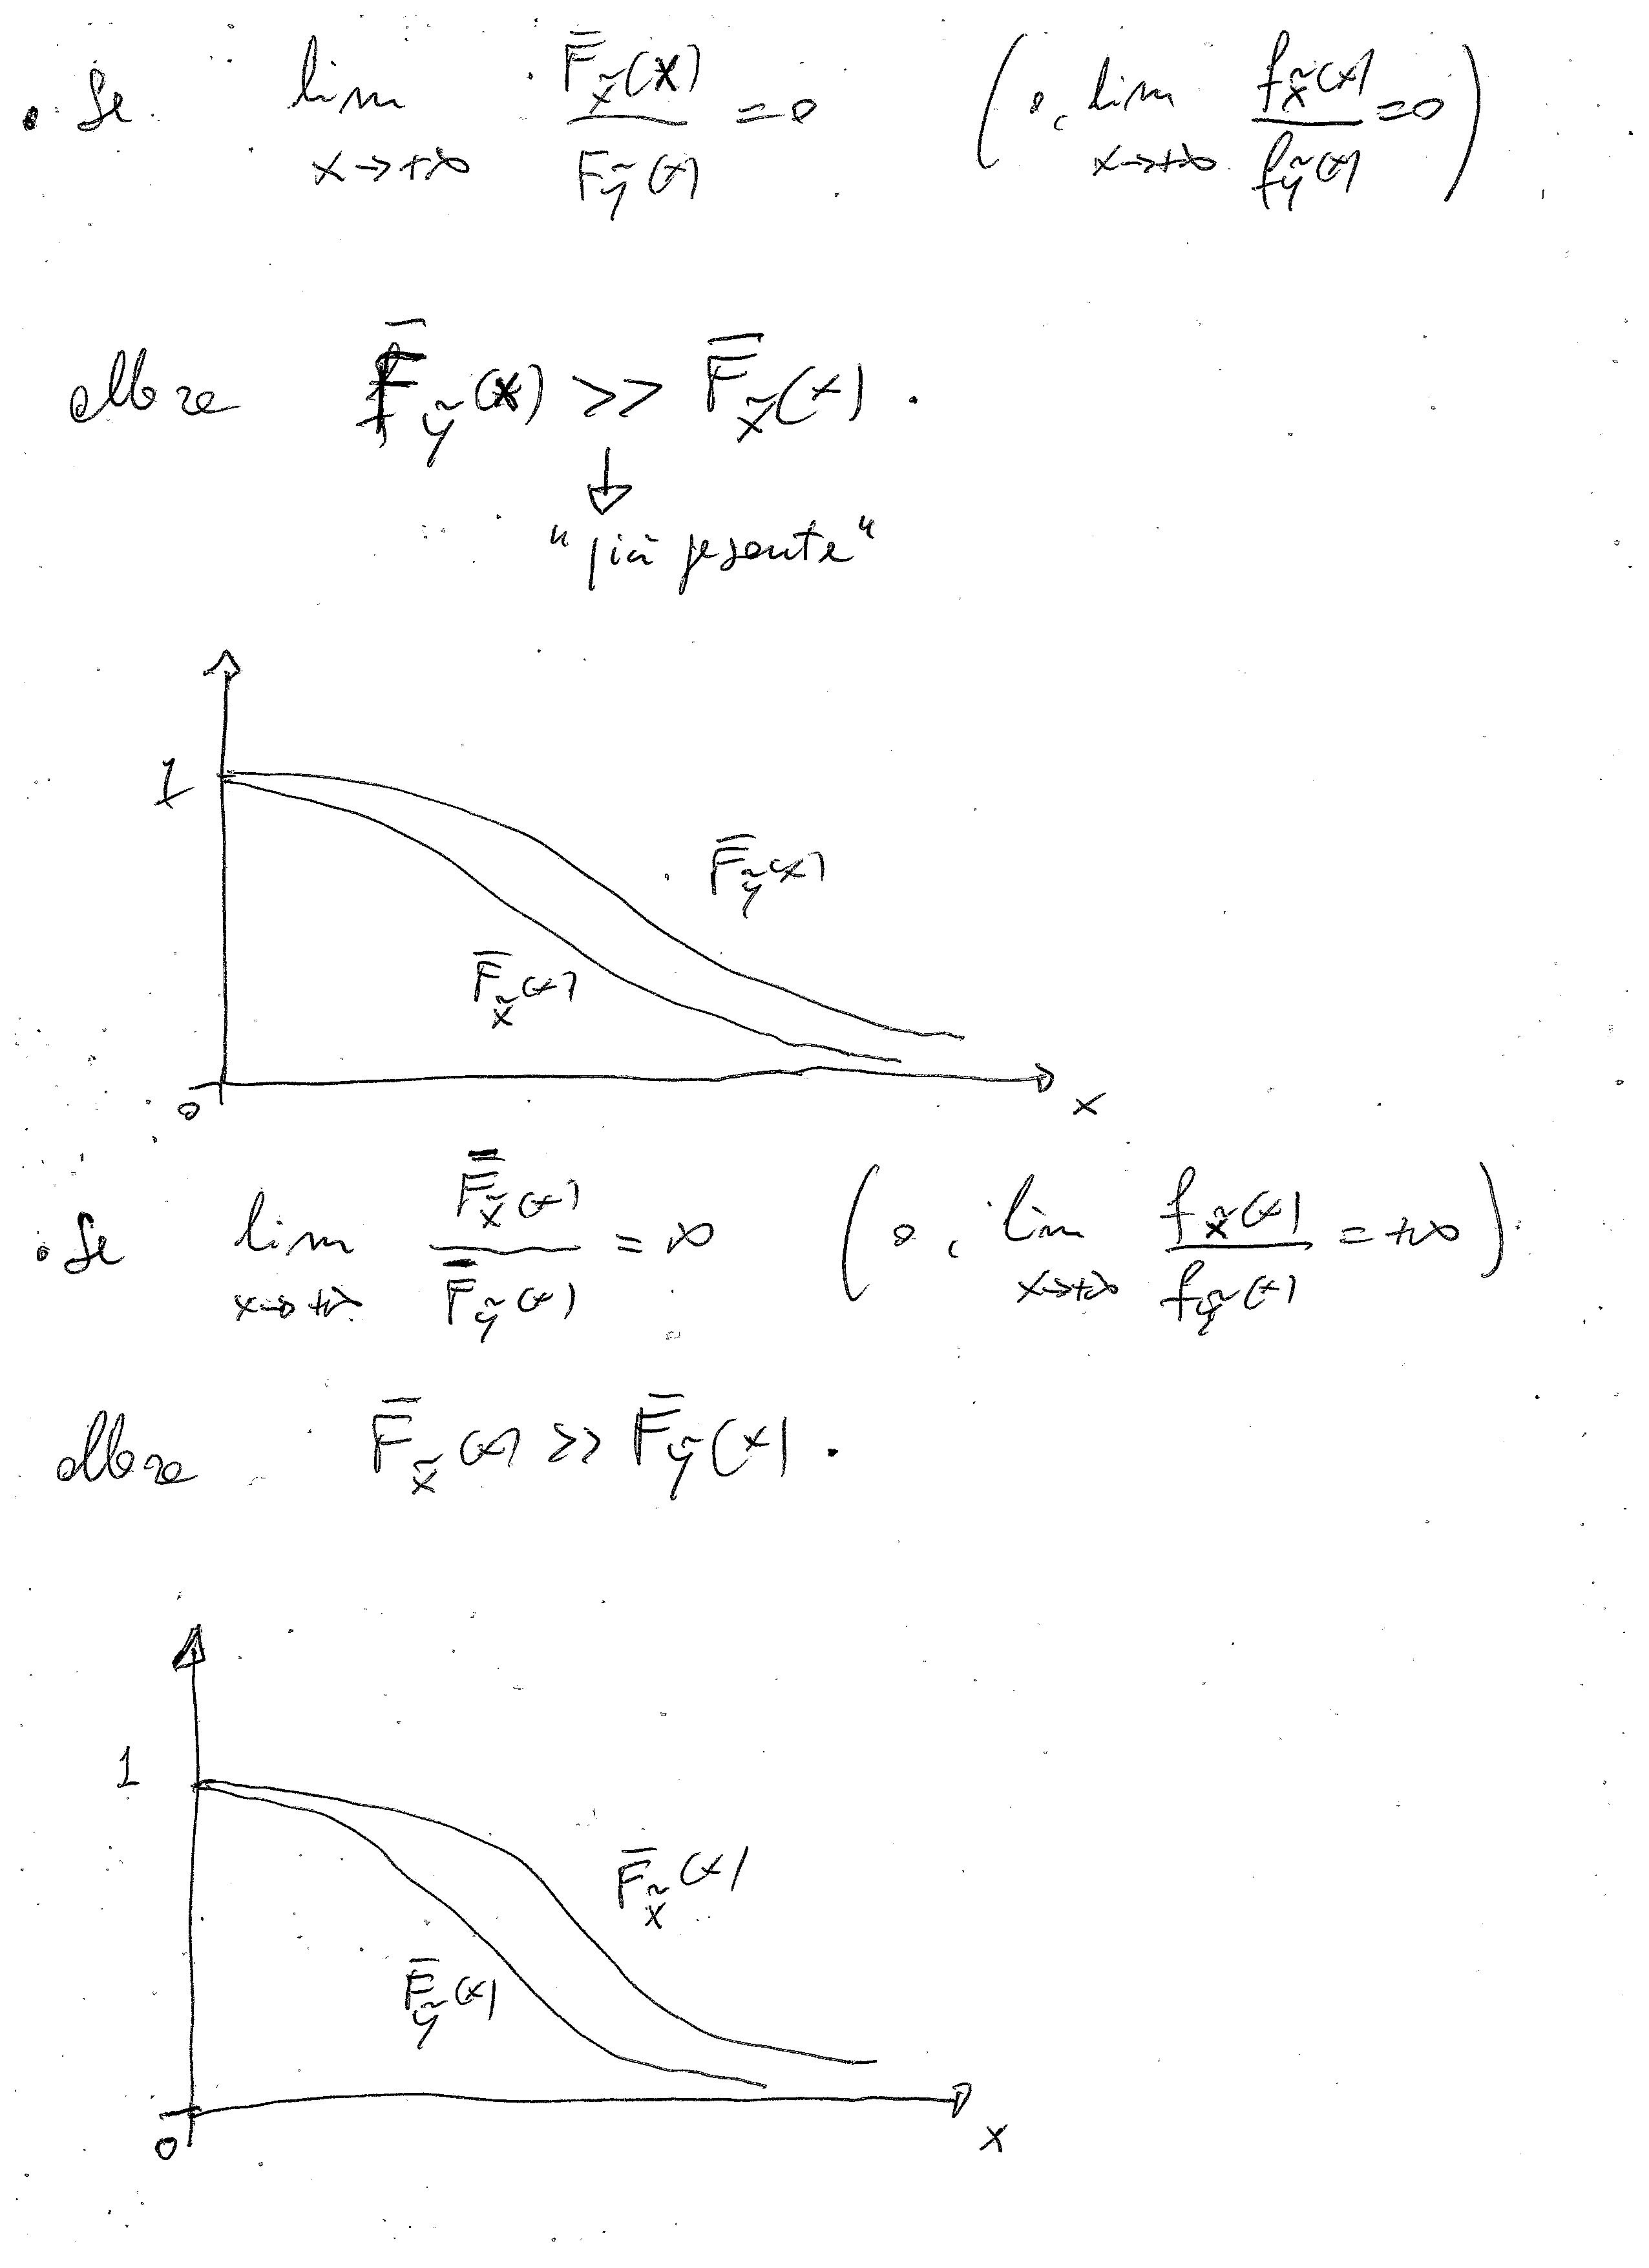 • Se lim_{x→+∞} F̄_X̃(x) / F_Ỹ(x) = 0 ( o, lim_{x→+∞} f_X̃(x) / f_Ỹ(x) = 0 )
allora F̄_Ỹ(x) >> F̄_X̃(x).
↓
"più pesante"
1
F̄_Ỹ(x)
F̄_X̃(x)
0
x
• Se lim_{x→+∞} F̄_X̃(x) / F̄_Ỹ(x) = ∞ ( o, lim_{x→+∞} f_X̃(x) / f_Ỹ(x) = +∞ )
allora F̄_X̃(x) >> F̄_Ỹ(x).
1
F̄_X̃(x)
F̄_Ỹ(x)
0
x